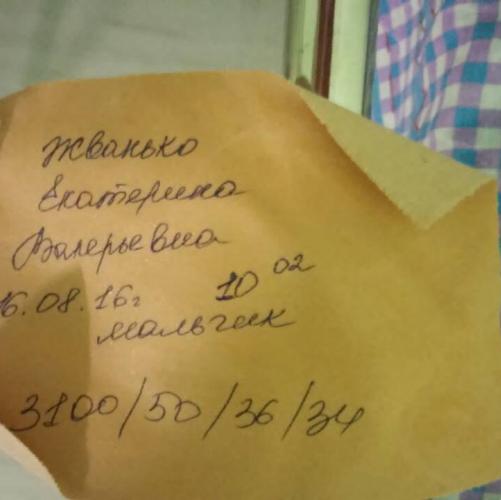 Жванько
Екатерина
Валерьевна
16.08.16г 10 02
мальчик
3100/50/36/34